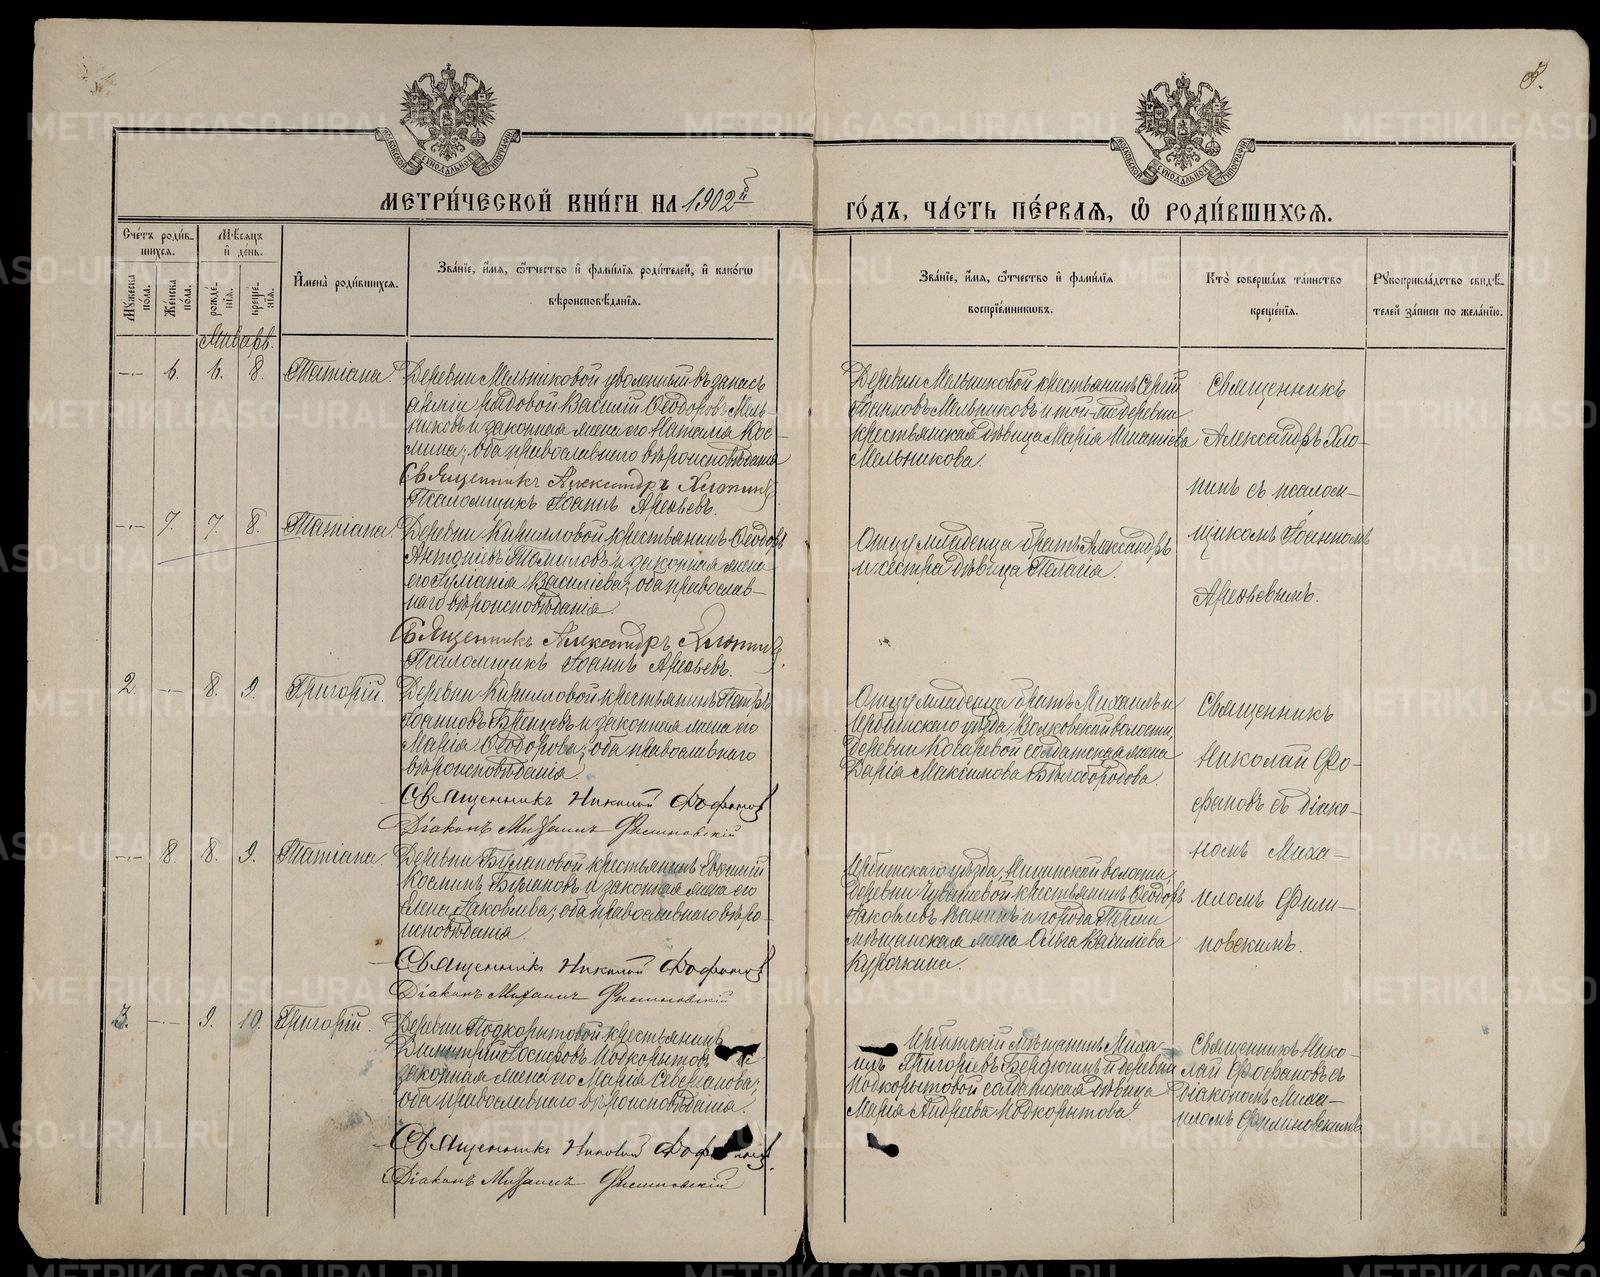 МЕТРИ́ЧЕСКОЙ КНИ́ГИ НА 1902й
ГО́ДЪ, ЧА́СТЬ ПЕ́РВАЯ, Ѡ҆ РОДИ́ВШИХСЯ.
Сче́тъ роди́в-
шихся.
Мѣ́сяцъ
и҆ де́нь.
Му́жеска
по́ла.
Же́нска
по́ла.
рожде́-
нїя.
креще́-
нїя.
И҆мена̀ роди́вшихся.
Зва́нїе, и҆́мя, ѻ҆́тчество и҆ фами́лїя роди́телей, и҆ како́гѡ
вѣроисповѣ́данїя.
Зва́нїе, и҆́мя, ѻ҆́тчество и҆ фами́лїя
воспрїе́мникѡвъ.
Кто̀ соверша́лъ та́инство
креще́нїя.
Рꙋкоприкла́дство свидѣ́-
телей за́писи по жела́нїю.
Январь.
6. 6. 8. Татіана.
Деревни Мельниковой уволенный въ запасъ
арміи рядовой Василій Ѳеодоровъ Мель-
никовъ и законная жена его Наталія Кос-
мина; оба православнаго вѣроисповѣданія
Священникъ Александръ
Псаломщикъ Іоаннъ Арефьевъ.
Деревни Мельниковой крестьянинъ Сергій
Іоанновъ Мельниковъ и той-же деревни
крестьянская дѣвица Марія Игнатіева
Мельникова.
Священникъ
Александръ Хло-
пинъ съ псалом-
щикомъ Іоанномъ
Арефьевымъ.
7. 7. 8. Татіана.
Деревни Кирилловой крестьянинъ Ѳеодоръ
Антоніевъ Томиловъ и законная жена
его Іуліанія Василіева; оба православ-
наго вѣроисповѣданія.
Священникъ Александръ
Псаломщикъ Іоаннъ Арефьевъ.
Отцу младенца братъ Александръ
и сестра дѣвица Пелагія.
2. 8. 9. Григорій.
Деревни Кирилловой крестьянинъ Петръ
Іоанновъ и законная жена его
Марія Ѳеодорова; оба православнаго
вѣроисповѣданія.
Священникъ Николай Фофановъ
Діаконъ Михаилъ Филиновскій
Отцу младенца братъ Михаилъ и
Ирбитскаго уѣзда, Волковской волости,
Деревни Косаревой солдатская жена
Дарія Максимова Бѣлобородова.
Священникъ
Николай Фо-
фановъ съ діако-
номъ Миха-
иломъ Фили-
новскимъ.
8. 8. 9. Татіана.
Деревни Бѣлановой крестьянинъ Евѳимій
Косминъ Бѣлановъ и законная жена его
Елена Іаковлева; оба православнаго вѣро-
исповѣданія.
Священникъ Николай Фофановъ
Діаконъ Михаилъ Филиновскій
Ирбитскаго уѣзда, Ницинской волости,
Деревни Чувашевой крестьянинъ Ѳеодоръ
Іаковлевъ и города Перми
мѣщанская жена Ольга Василіева
Курочкина.
3. 9. 10. Григорій.
Деревни Подкорытовой крестьянинъ
Димитрій Іосифовъ Подкорытовъ и
законная жена его Марія Северіанова;
оба православнаго вѣроисповѣданія.
Священникъ Николай
Діаконъ Михаилъ Филиновскій
Ирбитскій мѣщанинъ Миха-
илъ Григоріевъ Бердюгинъ и деревни
Подкорытовой солдатская дѣвица
Марія Андреева Подкорытова.
Священникъ Нико-
лай Фофановъ съ
діакономъ Миха-
иломъ Филиновскимъ
METRIKI.GASO-URAL.RU